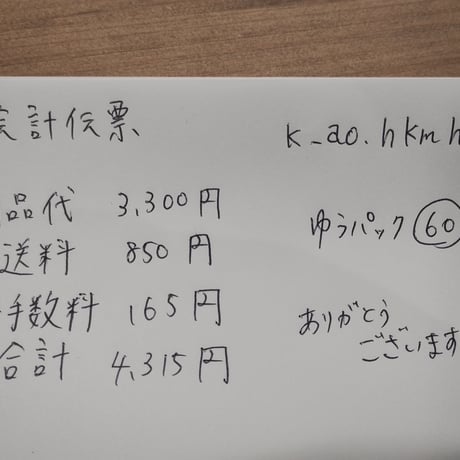 会計伝票
品代 3,300円
送料 850円
手数料 165円
合計 4,315円
k_ao.hkmh
ゆうパック 60
ありがとう
ございます